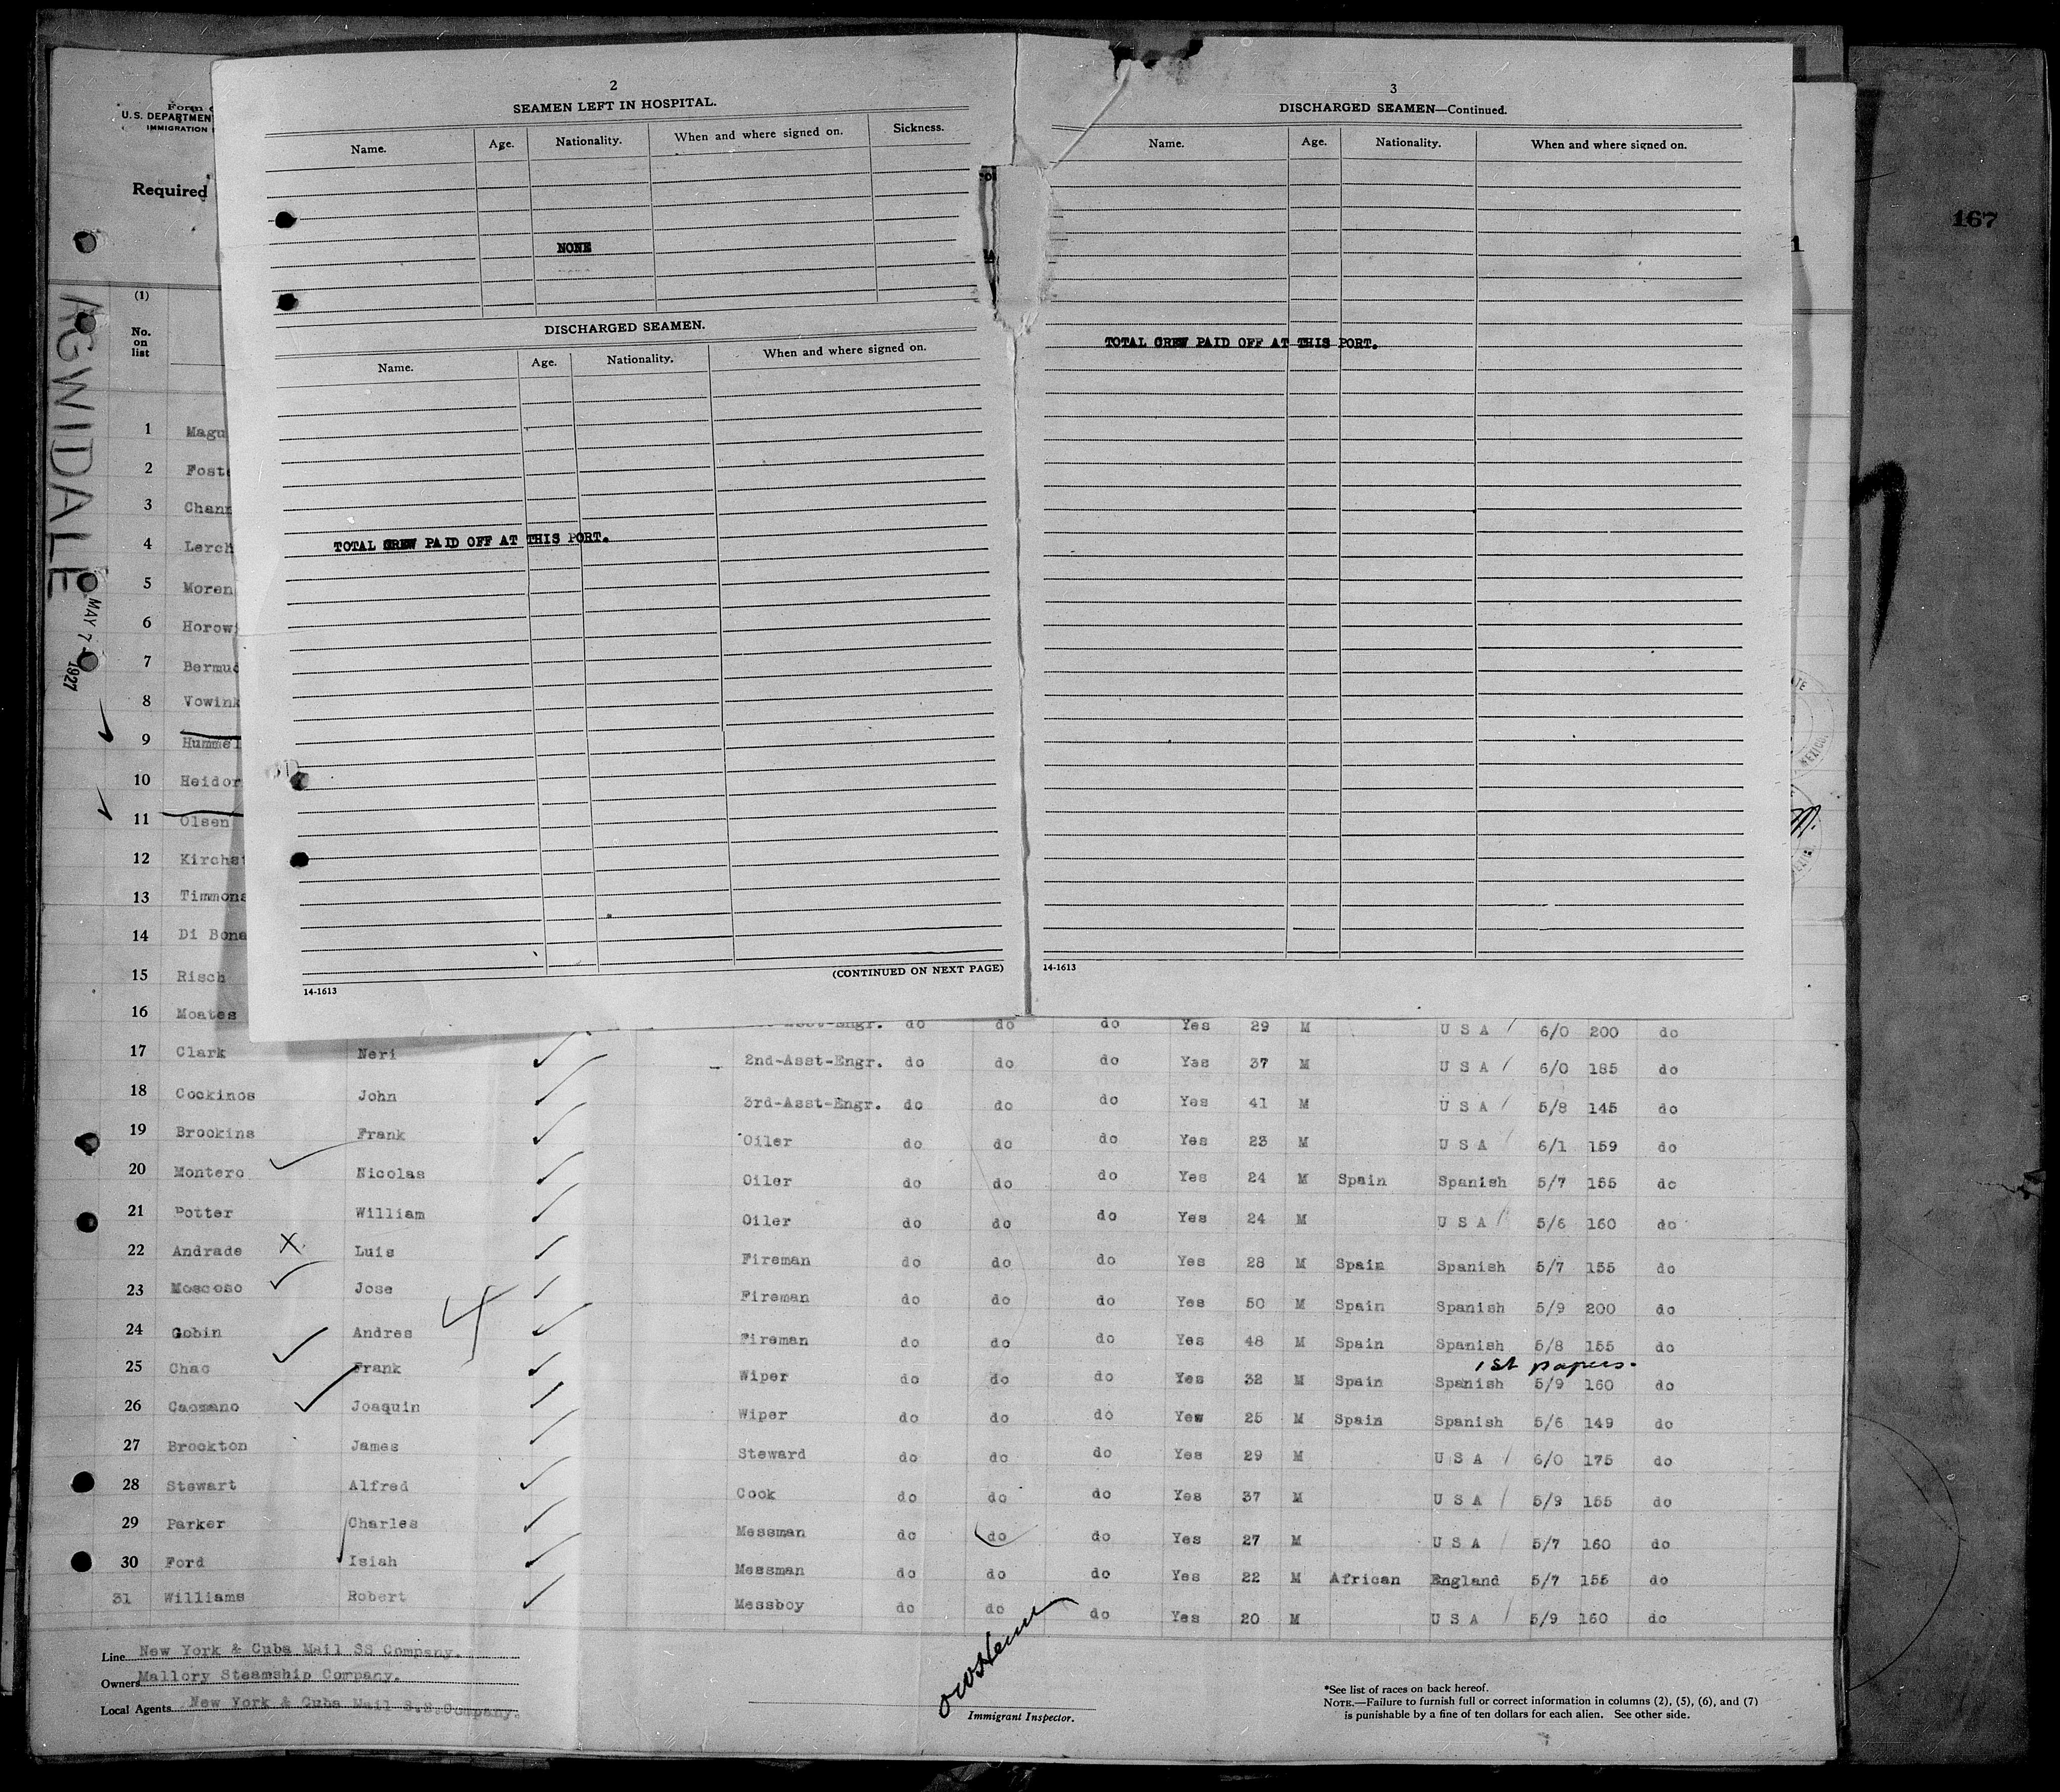 Form
U.S. DEPARTMEN
IMMIGRATION
Required
167
1
ARGWIDALE
MAY 7 1927
2
SEAMEN LEFT IN HOSPITAL.
Name. Age. Nationality. When and where signed on. Sickness.
NONE
DISCHARGED SEAMEN.
Name. Age. Nationality. When and where signed on.
TOTAL CREW PAID OFF AT THIS PORT.
(CONTINUED ON NEXT PAGE)
14-1613
3
DISCHARGED SEAMEN—Continued.
Name. Age. Nationality. When and where signed on.
TOTAL CREW PAID OFF AT THIS PORT.
14-1613
(1)
No.
on
list
1 Magu
2 Foste
3 Chann
4 Lerch
5 Moren
6 Horowi
7 Bermud
8 Vowink
9 Hummel
10 Heidor
11 Olsen
12 Kirchst
13 Timmons
14 Di Bona
15 Risch
16 Moates Asst-Engr. do do do Yes 29 M U S A / 6/0 200 do
17 Clark Neri 2nd-Asst-Engr. do do do Yas 37 M U S A / 6/0 185 do
18 Cockinos John 3rd-Asst-Engr. do do do Yes 41 M U S A / 5/8 145 do
19 Brookins Frank Oiler do do do Yes 23 M U S A / 6/1 159 do
20 Montero Nicolas Oiler do do do Yes 24 M Spain Spanish 5/7 155 do
21 Potter William Oiler do do do Yes 24 M U S A / 5/6 160 do
22 Andrade X Luis Fireman do do do Yes 28 M Spain Spanish 5/7 155 do
23 Moscoso Jose Fireman do do do Yes 50 M Spain Spanish 5/9 200 do
24 Gobin Andres Fireman do do do Yes 48 M Spain Spanish 5/8 155 do
1st papers.
25 Chao Frank Wiper do do do Yes 32 M Spain Spanish 5/9 160 do
26 Caomano Joaquin Wiper do do do Yew 25 M Spain Spanish 5/6 149 do
27 Brockton James Steward do do do Yes 29 M U S A / 6/0 175 do
28 Stewart Alfred Cook do do do Yes 37 M U S A / 5/9 155 do
29 Parker Charles Messman do do do Yes 27 M U S A / 5/7 160 do
30 Ford Isiah Messman do do do Yes 22 M African England 5/7 155 do
31 Williams Robert Messboy do do do Yes 20 M U S A / 5/9 160 do
Line New York & Cuba Mail SS Company.
Owners Mallory Steamship Company.
Local Agents New York & Cuba Mail S.S.Company.
Immigrant Inspector.
*See list of races on back hereof.
NOTE.—Failure to furnish full or correct information in columns (2), (5), (6), and (7)
is punishable by a fine of ten dollars for each alien. See other side.